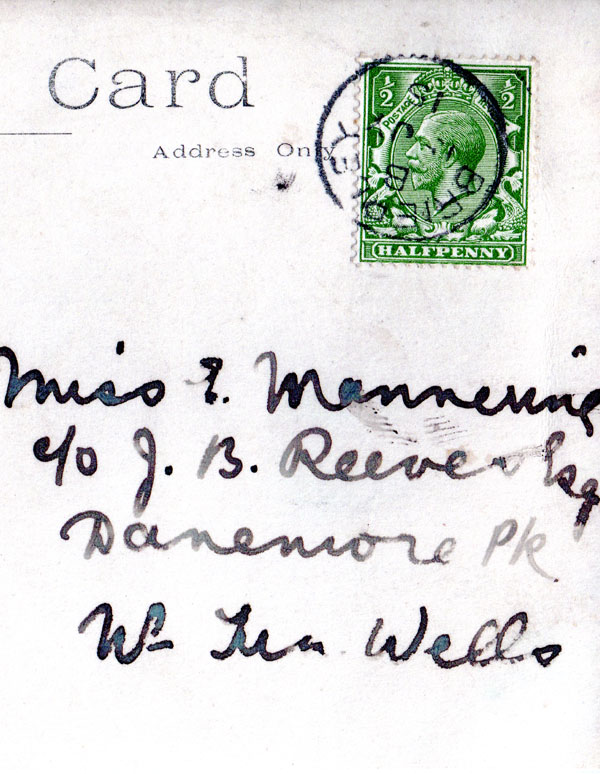 Card
Address Only
½ ½
POSTAGE
HALFPENNY
Miss E. Mannering
c/o J. B. Reeves Esq
Danemore Pk
Nr Tun. Wells